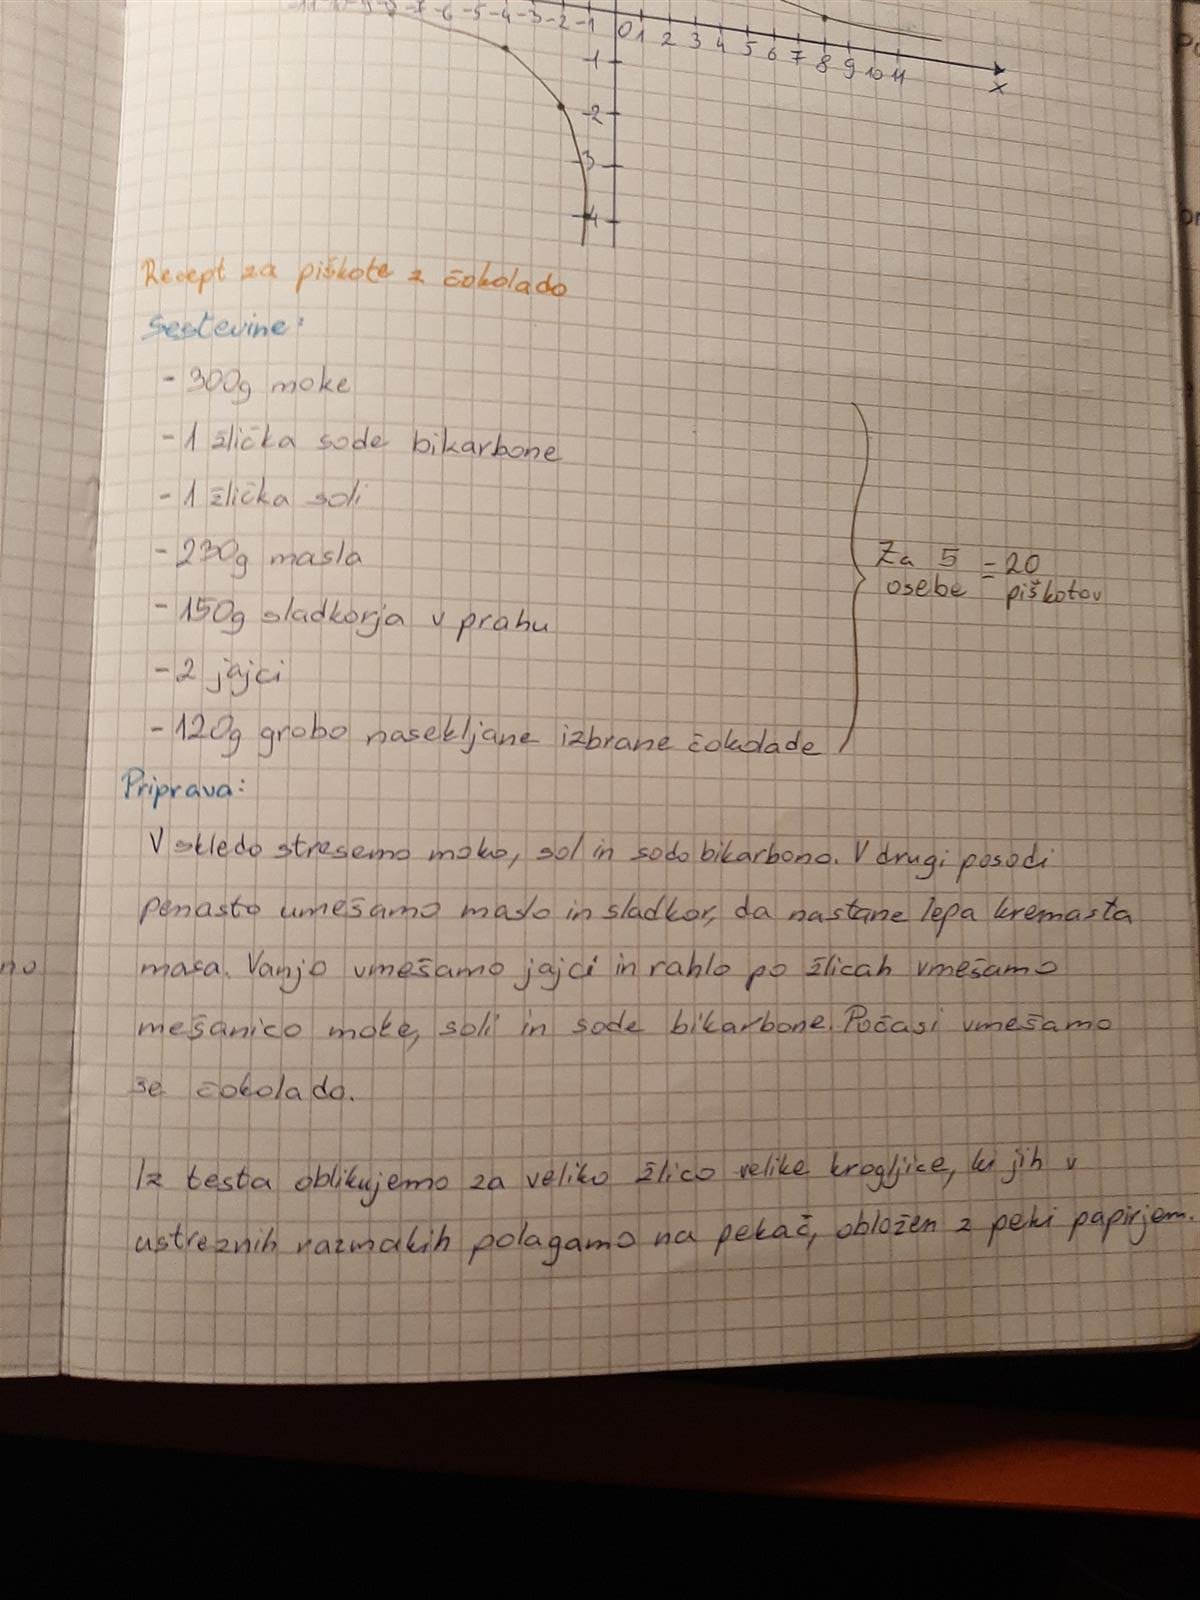 -7 -6 -5 -4 -3 -2 -1 0 1 2 3 4 5 6 7 8 9 10 11
x
-1
-2
-3
-4
Recept za piškote z čokolado
Sestevine:
- 300g moke
- 1 žlička sode bikarbone
- 1 žlička soli
- 230g masla
- 150g sladkorja v prahu
- 2 jajci
- 120g grobo nasekljane izbrane čokolade
Za 5 = 20
osebe piškotov
Priprava:
V skledo stresemo moko, sol in sodo bikarbono. V drugi posodi
penasto umešamo maslo in sladkor, da nastane lepa kremasta
masa. Vanjo vmešamo jajci in rahlo po žlicah vmešamo
mešanico moke, soli in sode bikarbone. Počasi vmešamo
še čokolado.
Iz testa oblikujemo za veliko žlico velike krogljice, ki jih v
ustreznih razmakih polagamo na pekač, obložen z peki papirjem.
no